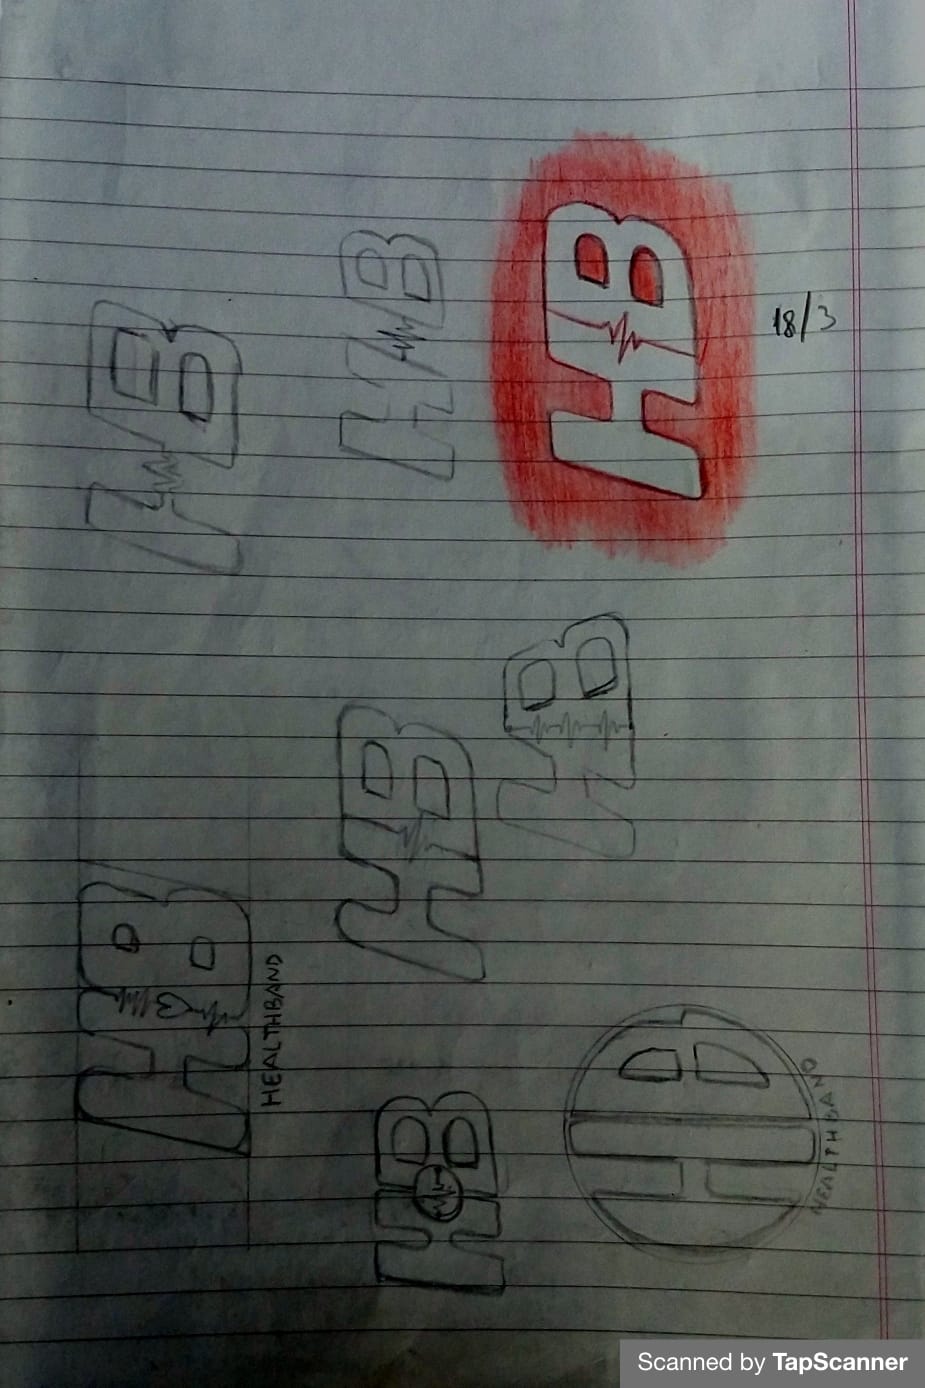 HB
HB
HB
18/3
HB
HB
HB
HEALTHBAND
HB
HB
HEALTHBAND
Scanned by TapScanner